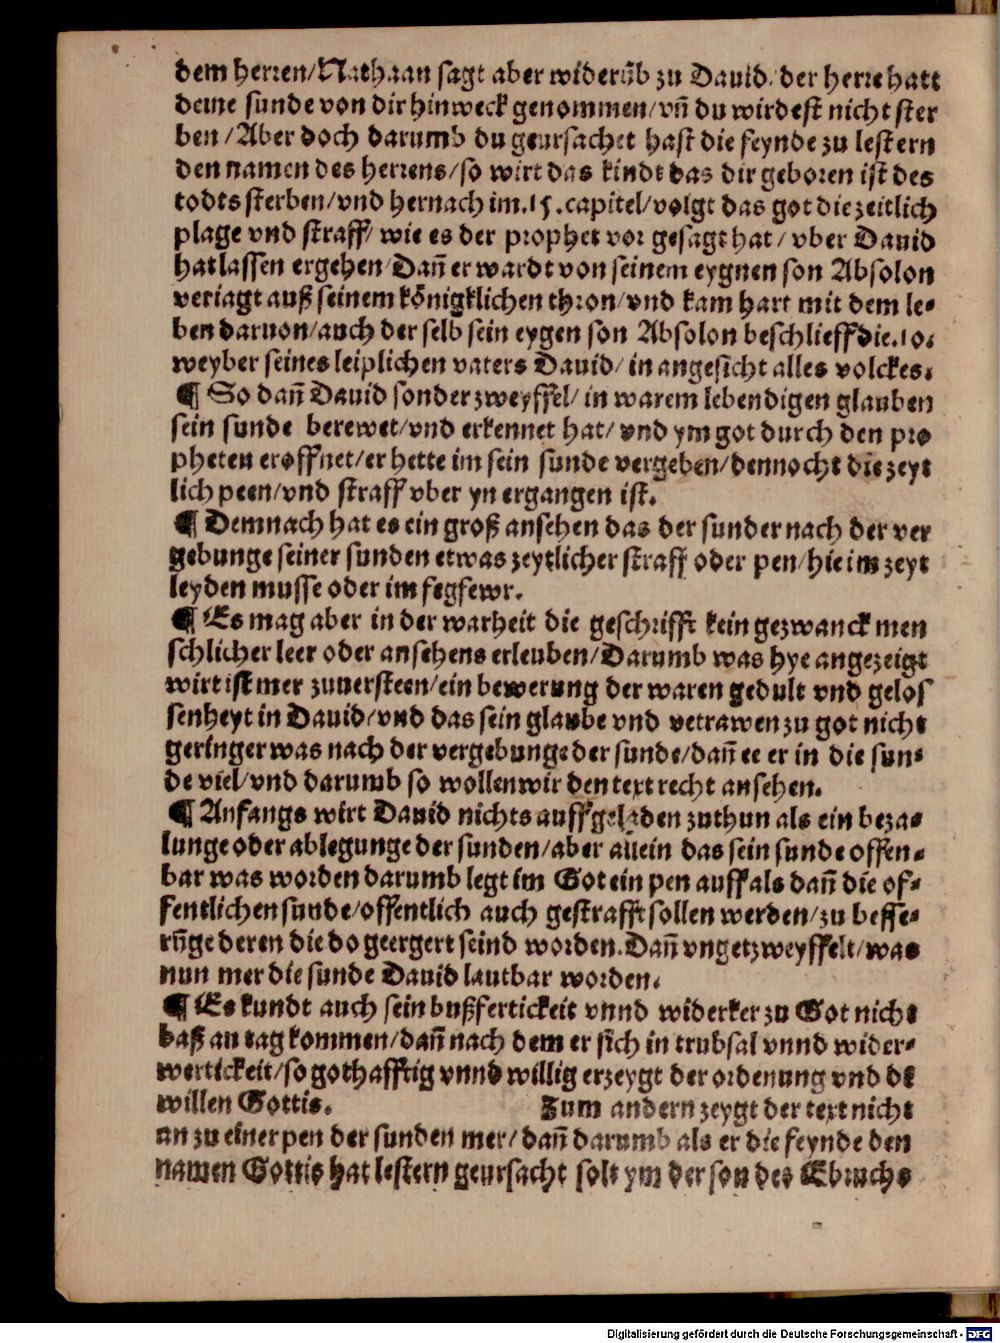 dem herren/Nathaan sagt aber widerūb zu Dauid/der herre hatt
deine sunde von dir hinweck genommen/vn̄ du wirdest nicht ster
ben/Aber doch darumb du geursachet hast die feynde zu lestern
den namen des herrens/so wirt das kindt das dir geboren ist des
todts sterben/vnd hernach im.15.capitel/volgt das got die zeitlich
plage vnd straff/wie es der prophet vor gesagt hat/vber Dauid
hat lassen ergehen/Dañ er wardt von seinem eygnen son Absolon
veriagt auß seinem königklichen thron/vnd kam hart mit dem le-
ben daruon/auch der selb sein eygen son Absolon beschlieff die.10.
weyber seines leiplichen vaters Dauid/in angesicht alles volckes.
¶ So dañ Dauid sonder zweyffel/in warem lebendigen glauben
sein sunde berewet/vnd erkennet hat/vnd ym got durch den pro
pheten eroffnet/er hette im sein sunde vergeben/dennocht die zeyt
lich peen/vnd straff vber yn ergangen ist.
¶ Demnach hat es ein groß ansehen das der sunder nach der ver
gebunge seiner sunden etwas zeytlicher straff oder pen/hie im zeyt
leyden musse oder im fegfewr.
¶ Es mag aber in der warheit die geschrifft kein gezwanck men
schlicher leer oder ansehens erleuben/Darumb was hye angezeigt
wirt ist mer zuuersteen/ein bewerung der waren gedult vnd gelos
senheyt in Dauid/vnd das sein glaube vnd vetrawen zu got nicht
geringer was nach der vergebunge der sunde/dañ ee er in die sun-
de viel/vnd darumb so wollen wir den text recht ansehen.
¶ Anfangs wirt Dauid nichts auffgeladen zuthun als ein beza-
lunge oder ablegunge der sunden/aber allein das sein sunde offen-
bar was worden darumb legt im Got ein pen auff als dañ die of-
fentlichen sunde/offentlich auch gestrafft sollen werden/zu besse-
rūge deren die do geergert seind worden. Dañ vngetzweyffelt/was
nun mer die sunde Dauid lautbar worden.
¶ Es kundt auch sein bußfertickeit vnnd widerker zu Got nicht
baß an tag kommen/dañ nach dem er sich in trubsal vnnd wider-
wertickeit/so gothafftig vnnd willig erzeygt der ordenung vnd dē
willen Gottis. Zum andern zeygt der text nicht
an zu einer pen der sunden mer/dañ darumb als er die feynde den
namen Gottis hat lestern geursacht solt ym der son des Ebruchs
Digitalisierung gefördert durch die Deutsche Forschungsgemeinschaft - DFG